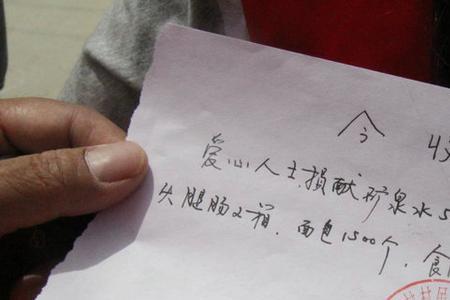 今 收
爱心人士损献矿泉水5
火腿肠2箱. 面包1500个. 食